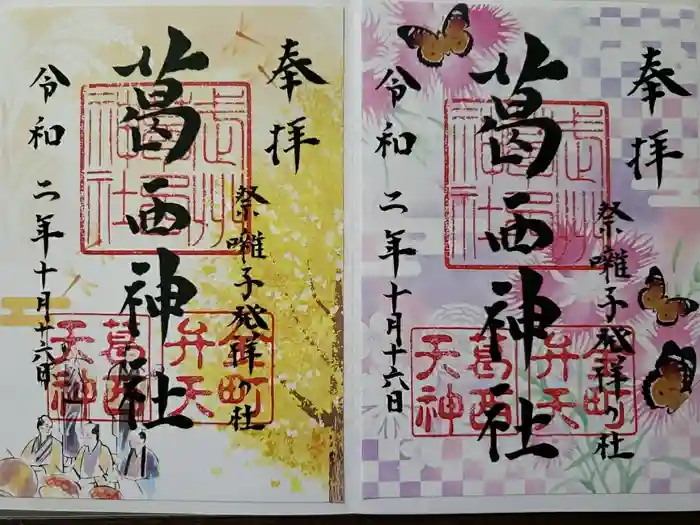 奉拝
葛西神社
祭囃子発祥の社
令和二年十月十六日
金町
弁天
葛西
天神
奉拝
葛西神社
祭囃子発祥の社
令和二年十月十六日
金町
弁天
葛西
天神